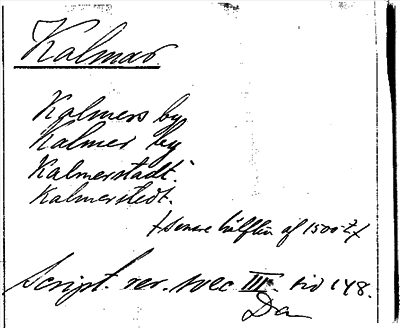 Kalmar
Kalmers by
Kalmer by
Kalmerstadt.
Kalmerstedt.
(senare hälften af 1500-t.)
Script. rer. svec III. sid 148.
Da